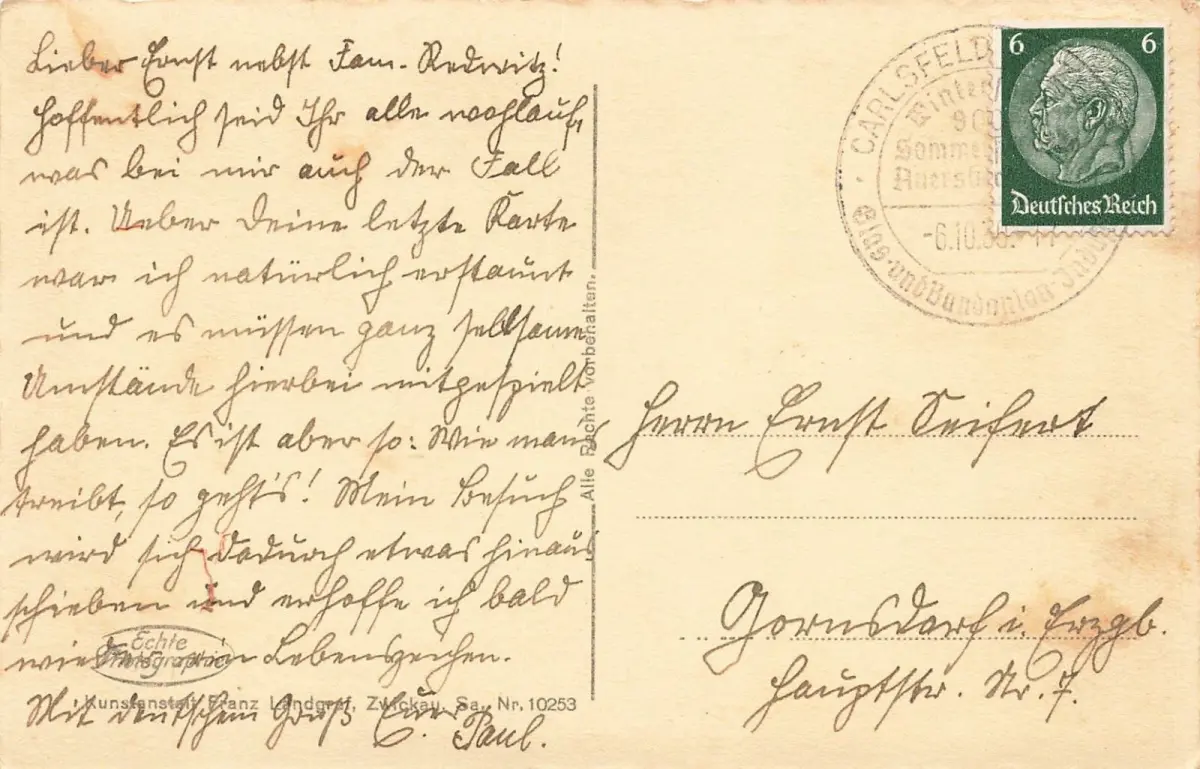 Lieber Ernst nebst Fam. Redwitz!
Hoffentlich seid Ihr alle wohlauf,
was bei mir auch der Fall
ist. Ueber Deine letzte Karte
war ich natürlich erstaunt
und es müssen ganz seltsame
Umstände hierbei mitgespielt
haben. Es ist aber so: Wie man's
treibt, so geht's! Mein Besuch
wird sich dadurch etwas hinaus
schieben und erhoffe ich bald
wieder ein Lebenszeichen.
Mit deutschem Gruß Euer
Paul.
Echte
Photographie
Kunstanstalt Franz Landgraf, Zwickau, Sa. Nr. 10253
Alle Rechte vorbehalten.
6 6
Deutsches Reich
CARLSFELD
Winter
900
Somme
Auersbe
-6.10.
Glas- und Bandonion-Indu
Herrn Ernst Seifert
Gornsdorf i. Erzgb.
Hauptstr. Nr. 7.